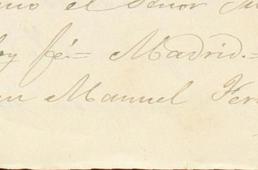 el Señor
fé= Madrid.=
Manuel Fer